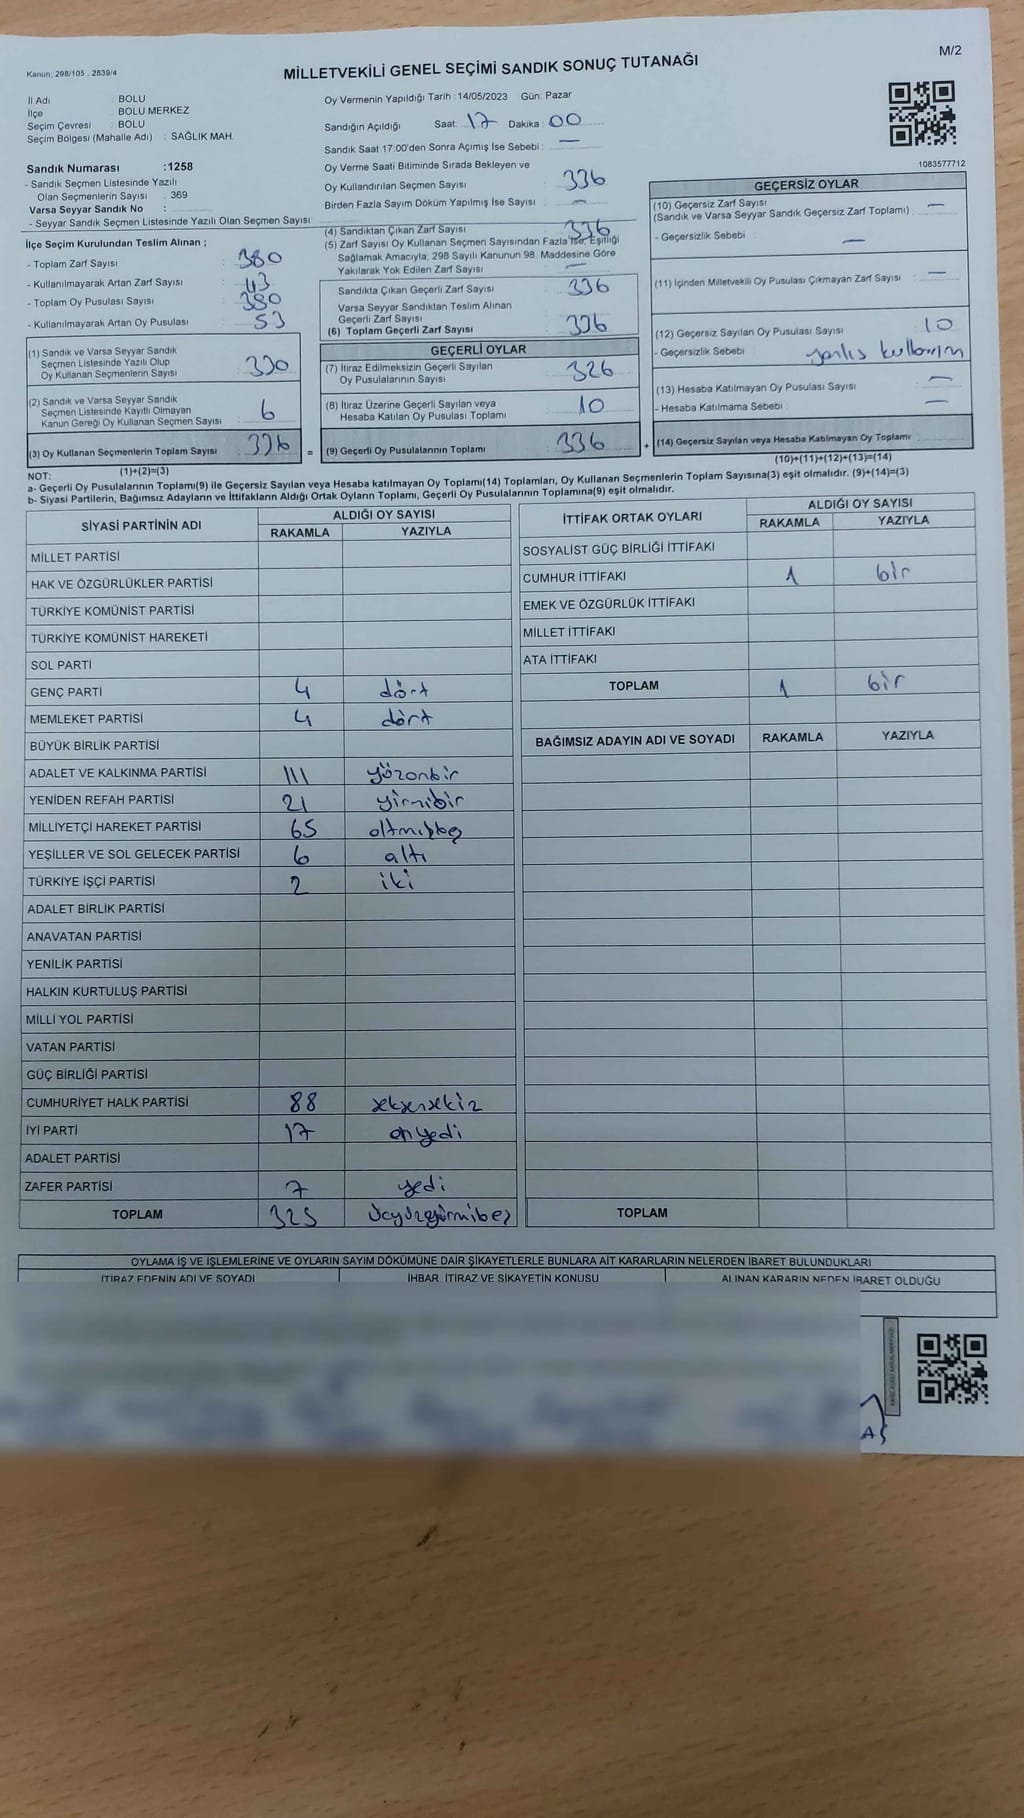 Kanun; 298/105 , 2839/4
MİLLETVEKİLİ GENEL SEÇİMİ SANDIK SONUÇ TUTANAĞI
M/2
İl Adı : BOLU
İlçe : BOLU MERKEZ
Seçim Çevresi : BOLU
Seçim Bölgesi (Mahalle Adı) : SAĞLIK MAH.
Sandık Numarası :1258
- Sandık Seçmen Listesinde Yazılı
Olan Seçmenlerin Sayısı : 369
Varsa Seyyar Sandık No :
- Seyyar Sandık Seçmen Listesinde Yazılı Olan Seçmen Sayısı:
İlçe Seçim Kurulundan Teslim Alınan ;
- Toplam Zarf Sayısı : 380
- Kullanılmayarak Artan Zarf Sayısı : 43
- Toplam Oy Pusulası Sayısı : 380
- Kullanılmayarak Artan Oy Pusulası : 53
(1) Sandık ve Varsa Seyyar Sandık
Seçmen Listesinde Yazılı Olup
Oy Kullanan Seçmenlerin Sayısı : 330
(2) Sandık ve Varsa Seyyar Sandık
Seçmen Listesinde Kayıtlı Olmayan
Kanun Gereği Oy Kullanan Seçmen Sayısı : 6
(3) Oy Kullanan Seçmenlerin Toplam Sayısı : 336
(1)+(2)=(3)
Oy Vermenin Yapıldığı Tarih :14/05/2023 Gün: Pazar
Sandığın Açıldığı Saat: 17 Dakika : 00
Sandık Saat 17:00'den Sonra Açımış İse Sebebi : —
Oy Verme Saati Bitiminde Sırada Bekleyen ve
Oy Kullandırılan Seçmen Sayısı : 336
Birden Fazla Sayım Döküm Yapılmış İse Sayısı : —
(4) Sandıktan Çıkan Zarf Sayısı : 336
(5) Zarf Sayısı Oy Kullanan Seçmen Sayısından Fazla İse, Eşitliği
Sağlamak Amacıyla; 298 Sayılı Kanunun 98. Maddesine Göre
Yakılarak Yok Edilen Zarf Sayısı : —
Sandıkta Çıkan Geçerli Zarf Sayısı : 336
Varsa Seyyar Sandıktan Teslim Alınan
Geçerli Zarf Sayısı :
(6) Toplam Geçerli Zarf Sayısı : 336
GEÇERLİ OYLAR
(7) İtiraz Edilmeksizin Geçerli Sayılan
Oy Pusulalarının Sayısı : 326
(8) İtiraz Üzerine Geçerli Sayılan veya
Hesaba Katılan Oy Pusulası Toplamı : 10
= (9) Geçerli Oy Pusulalarının Toplamı : 336
1083577712
GEÇERSİZ OYLAR
(10) Geçersiz Zarf Sayısı
(Sandık ve Varsa Seyyar Sandık Geçersiz Zarf Toplamı) : —
- Geçersizlik Sebebi : —
(11) İçinden Milletvekili Oy Pusulası Çıkmayan Zarf Sayısı : —
(12) Geçersiz Sayılan Oy Pusulası Sayısı : 10
- Geçersizlik Sebebi yanlış kullanım
(13) Hesaba Katılmayan Oy Pusulası Sayısı : —
- Hesaba Katılmama Sebebi : —
+ (14) Geçersiz Sayılan veya Hesaba Katılmayan Oy Toplamı :
(10)+(11)+(12)+(13)=(14)
NOT:
a- Geçerli Oy Pusulalarının Toplamı(9) ile Geçersiz Sayılan veya Hesaba katılmayan Oy Toplamı(14) Toplamları, Oy Kullanan Seçmenlerin Toplam Sayısına(3) eşit olmalıdır. (9)+(14)=(3)
b- Siyasi Partilerin, Bağımsız Adayların ve İttifakların Aldığı Ortak Oyların Toplamı, Geçerli Oy Pusulalarının Toplamına(9) eşit olmalıdır.
SİYASİ PARTİNİN ADI ALDIĞI OY SAYISI
RAKAMLA YAZIYLA
MİLLET PARTİSİ
HAK VE ÖZGÜRLÜKLER PARTİSİ
TÜRKİYE KOMÜNİST PARTİSİ
TÜRKİYE KOMÜNİST HAREKETİ
SOL PARTİ
GENÇ PARTİ 4 dört
MEMLEKET PARTİSİ 4 dört
BÜYÜK BİRLİK PARTİSİ
ADALET VE KALKINMA PARTİSİ 111 yüzonbir
YENİDEN REFAH PARTİSİ 21 yirmibir
MİLLİYETÇİ HAREKET PARTİSİ 65 altmışbeş
YEŞİLLER VE SOL GELECEK PARTİSİ 6 altı
TÜRKİYE İŞÇİ PARTİSİ 2 iki
ADALET BİRLİK PARTİSİ
ANAVATAN PARTİSİ
YENİLİK PARTİSİ
HALKIN KURTULUŞ PARTİSİ
MİLLİ YOL PARTİSİ
VATAN PARTİSİ
GÜÇ BİRLİĞİ PARTİSİ
CUMHURİYET HALK PARTİSİ 88 seksensekiz
İYİ PARTİ 17 onyedi
ADALET PARTİSİ
ZAFER PARTİSİ 7 yedi
TOPLAM 325 üçyüzyirmibeş
İTTİFAK ORTAK OYLARI ALDIĞI OY SAYISI
RAKAMLA YAZIYLA
SOSYALİST GÜÇ BİRLİĞİ İTTİFAKI
CUMHUR İTTİFAKI 1 bir
EMEK VE ÖZGÜRLÜK İTTİFAKI
MİLLET İTTİFAKI
ATA İTTİFAKI
TOPLAM 1 bir
BAĞIMSIZ ADAYIN ADI VE SOYADI RAKAMLA YAZIYLA
TOPLAM
OYLAMA İŞ VE İŞLEMLERİNE VE OYLARIN SAYIM DÖKÜMÜNE DAİR ŞİKAYETLERLE BUNLARA AİT KARARLARIN NELERDEN İBARET BULUNDUKLARI
İTİRAZ EDENİN ADI VE SOYADI İHBAR, İTİRAZ VE ŞİKAYETİN KONUSU ALINAN KARARIN NEDEN İBARET OLDUĞU